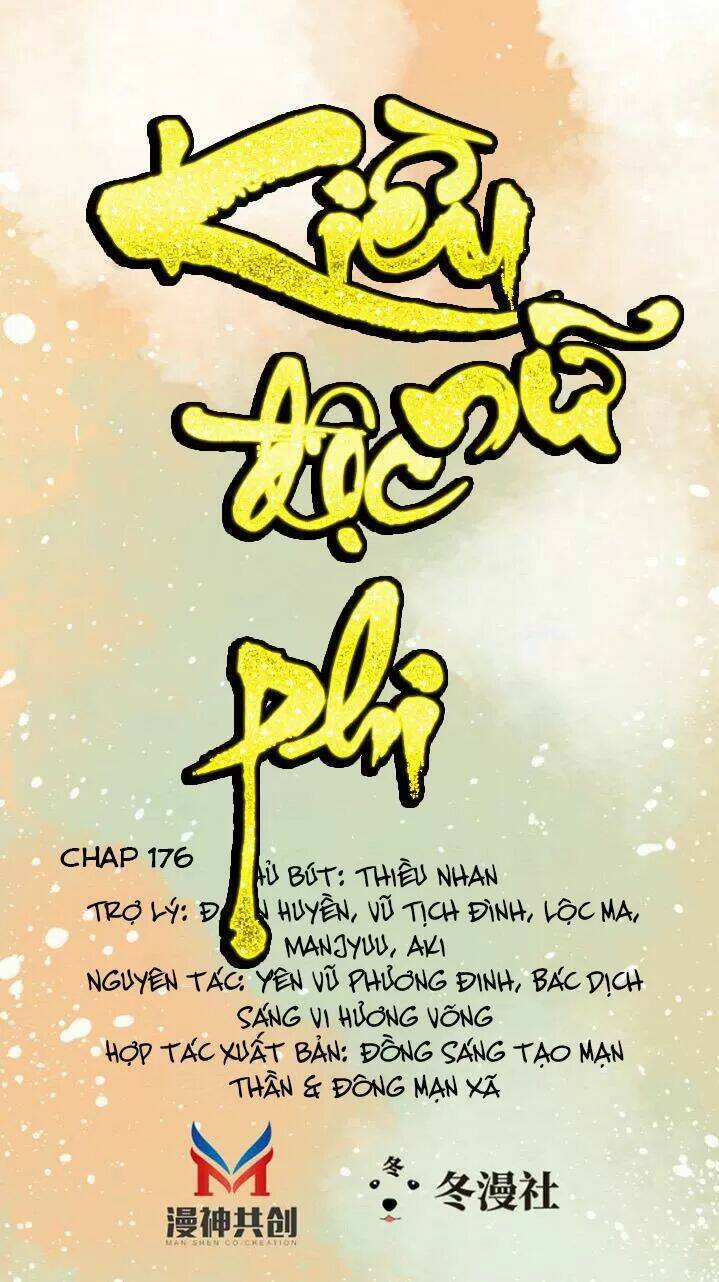 Kiều
nữ
độc
phi
CHAP 176
BÚT: THIỀU NHAN
TRỢ LÝ: HUYỀN, VŨ TỊCH ĐÌNH, LỘC MA,
MANJYUU, AKI
NGUYÊN TÁC: YÊN VŨ PHƯƠNG ĐINH, BÁC DỊCH
SÁNG VI HƯƠNG VÕNG
HỢP TÁC XUẤT BẢN: ĐỒNG SÁNG TẠO MẠN
THẦN & ĐÔNG MẠN XÃ
冬
漫神共创
MAN SHEN CO-CREATION
冬漫社